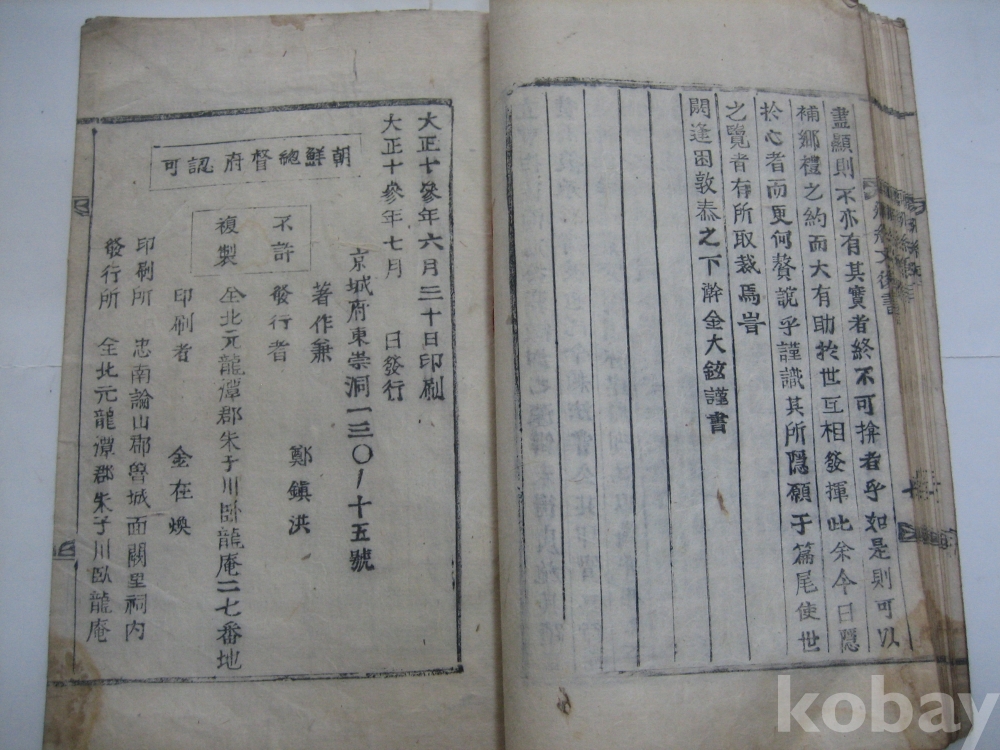 盡顯則不亦有其實者終不可揜者乎如是則可以
補鄉禮之約而大有助於世互相發揮此余今日隱
於心者而更何贅說乎謹識其所隱願于篇尾使世
之覽者有所取裁焉耆
閼逢困敦泰之下澣金大鉉謹書
大正十參年六月三十日印刷
大正十參年七月 日發行
朝鮮總督府認可
京城府東崇洞一三〇ノ十五號
著作兼
發行者 鄭鎭洪
不許
複製
仝北元龍潭郡朱子川卧龍庵二七番地
印刷者 金在煥
印刷所 忠南論山郡魯城面闕里祠內
發行所 仝北元龍潭郡朱子川臥龍庵
kobay